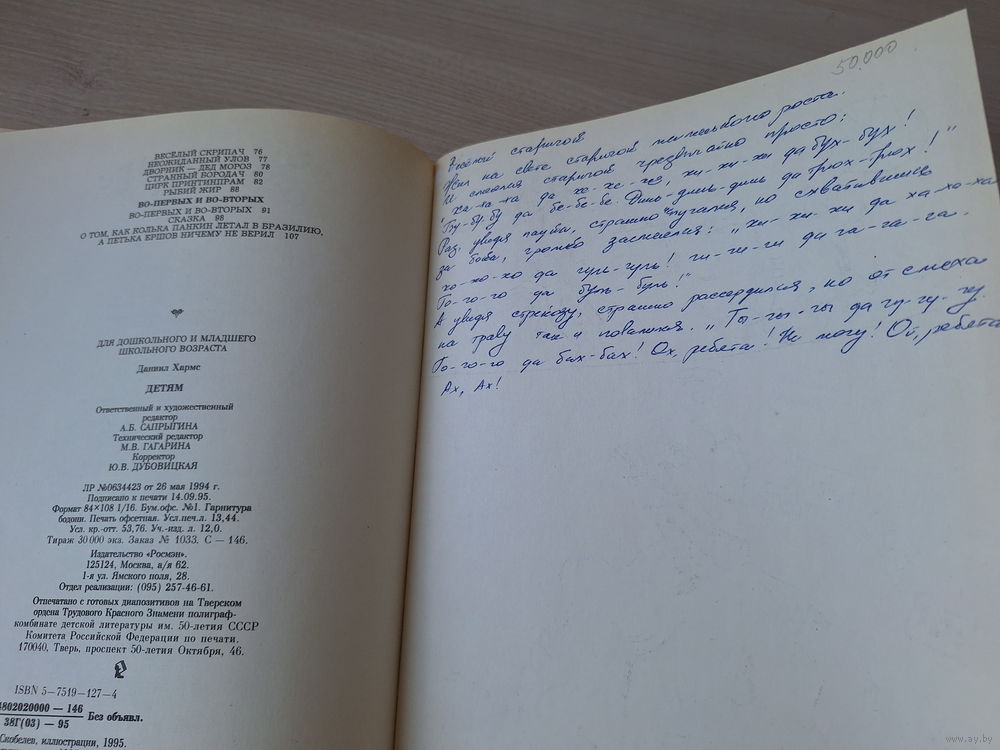 ВЕСЁЛЫЙ СКРИПАЧ 76
НЕОЖИДАННЫЙ УЛОВ 77
ДВОРНИК — ДЕД МОРОЗ 78
СТРАННЫЙ БОРОДАЧ 80
ЦИРК ПРИНТИНПРАМ 82
РЫБИЙ ЖИР 88
ВО-ПЕРВЫХ И ВО-ВТОРЫХ
ВО-ПЕРВЫХ И ВО-ВТОРЫХ 91
СКАЗКА 98
О ТОМ, КАК КОЛЬКА ПАНКИН ЛЕТАЛ В БРАЗИЛИЮ,
А ПЕТЬКА ЕРШОВ НИЧЕМУ НЕ ВЕРИЛ 107
ДЛЯ ДОШКОЛЬНОГО И МЛАДШЕГО
ШКОЛЬНОГО ВОЗРАСТА
Даниил Хармс
ДЕТЯМ
Ответственный и художественный
редактор
А.Б. САПРЫГИНА
Технический редактор
М.В. ГАГАРИНА
Корректор
Ю.В. ДУБОВИЦКАЯ
ЛР №0634423 от 26 мая 1994 г.
Подписано к печати 14.09.95.
Формат 84×108 1/16. Бум.офс. №1. Гарнитура
бодони. Печать офсетная. Усл.печ.л. 13,44.
Усл. кр.-отт. 53,76. Уч.-изд. л. 12,0.
Тираж 30 000 экз. Заказ № 1033. С — 146.
Издательство «Росмэн».
125124, Москва, а/я 62.
1-я ул. Ямского поля, 28.
Отдел реализации: (095) 257-46-61.
Отпечатано с готовых диапозитивов на Тверском
ордена Трудового Красного Знамени полиграф-
комбинате детской литературы им. 50-летия СССР
Комитета Российской Федерации по печати.
170040, Тверь, проспект 50-летия Октября, 46.
ISBN 5—7519—127—4
4802020000 — 146
38Г(03) — 95
Без объявл.
Скобелев, иллюстрации, 1995.
50.000
Весёлый старичок
Жил на свете старичок маленького роста.
И смеялся старичок чрезвычайно просто:
"ха-ха-ха да хе-хе-хе, хи-хи-хи да бух-бух!
Бу-бу-бу да бе-бе-бе. Динь-динь-динь да трюх-трюх!"
Раз, увидя паука, страшно испугался, но схватившись
за бока, громко засмеялся: "хи-хи-хи да ха-ха-ха
хо-хо-хо да гуль-гуль! ги-ги-ги да га-га-га.
Го-го-го да буль-буль!"
А увидя стрекозу, страшно рассердился, но от смеха
на траву так и повалился. "Гы-гы-гы да гу-гу-гу.
Го-го-го да бах-бах! Ох, ребята! Не могу! Ой, ребята
Ах, Ах!
www.ay.by